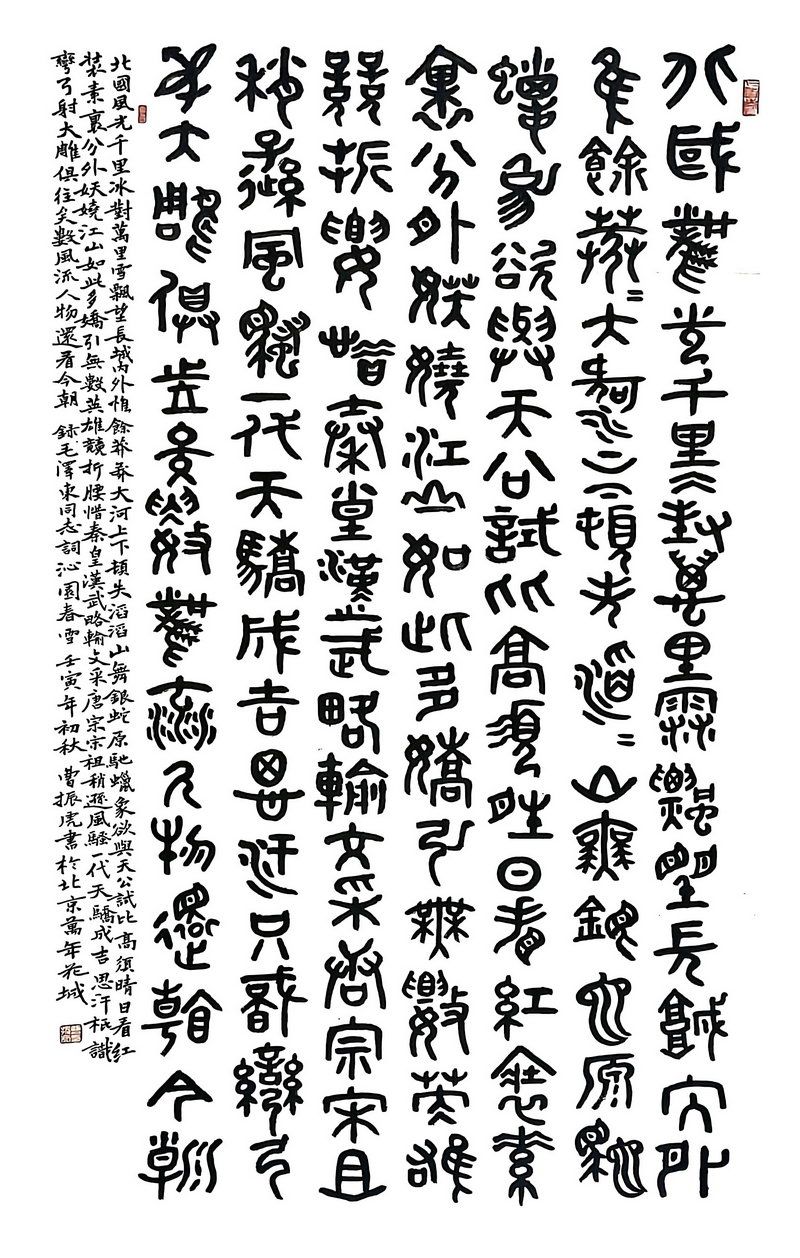 北國風光千里冰封萬里雪飄望長城内外
惟餘莽〻大河上下頓失滔〻山舞銀蛇原馳
蠟象欲與天公試比高須晴日看紅裝素
裹分外妖嬈江山如此多嬌引無數英雄
競折腰惜秦皇漢武略輸文采唐宗宋祖
稍遜風騷一代天驕成吉思汗只識彎弓
射大雕俱往矣數風流人物還看今朝
北國風光千里冰對萬里雪飄望長城内外惟餘莽莽大河上下頓失滔滔山舞銀蛇原馳蠟象欲與天公試比高須晴日看紅
裝素裹分外妖嬈江山如此多嬌引無數英雄競折腰惜秦皇漢武略輸文采唐宗宋祖稍遜風騷一代天驕成吉思汗祇識
彎弓射大雕俱往矣數風流人物還看今朝 録毛澤東同志詞沁園春雪 壬寅年初秋 曹振虎書於北京萬年花城